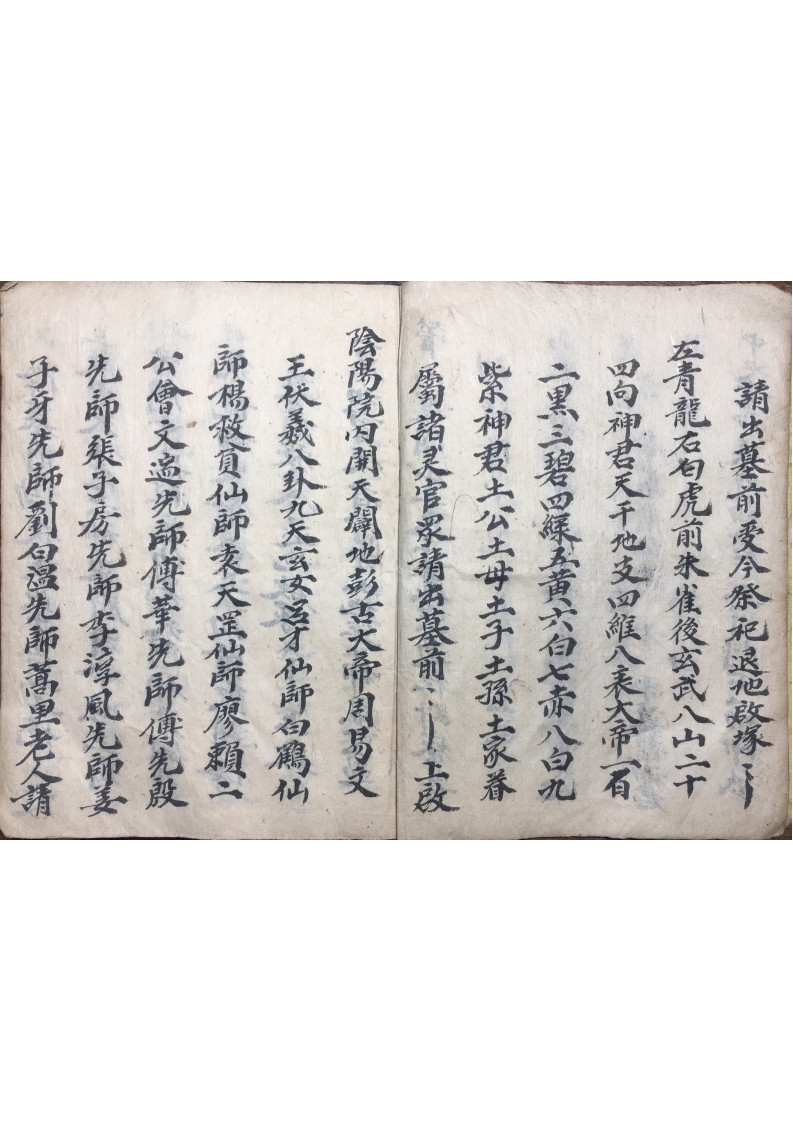 請出墓前受今祭祀退地啟塚〻
左青龍右白虎前朱雀後玄武八山二十
四向神君天干地支四維八表大帝一百
二黑三碧四綠五黃六白七赤八白九
紫神君土公土母土子土孫土家眷
屬諸灵官眾請出墓前〻上啟
陰陽院内開天闢地彭古大帝周易文
王伏羲八卦九天玄女呂才仙師白鶴仙
師楊救貟仙師袁天罡仙師廖賴二
公曾文遄先師傅華先師傅先殷
先師張子房先師李淳風先師姜
子牙先師劉白温先師蒿里老人請